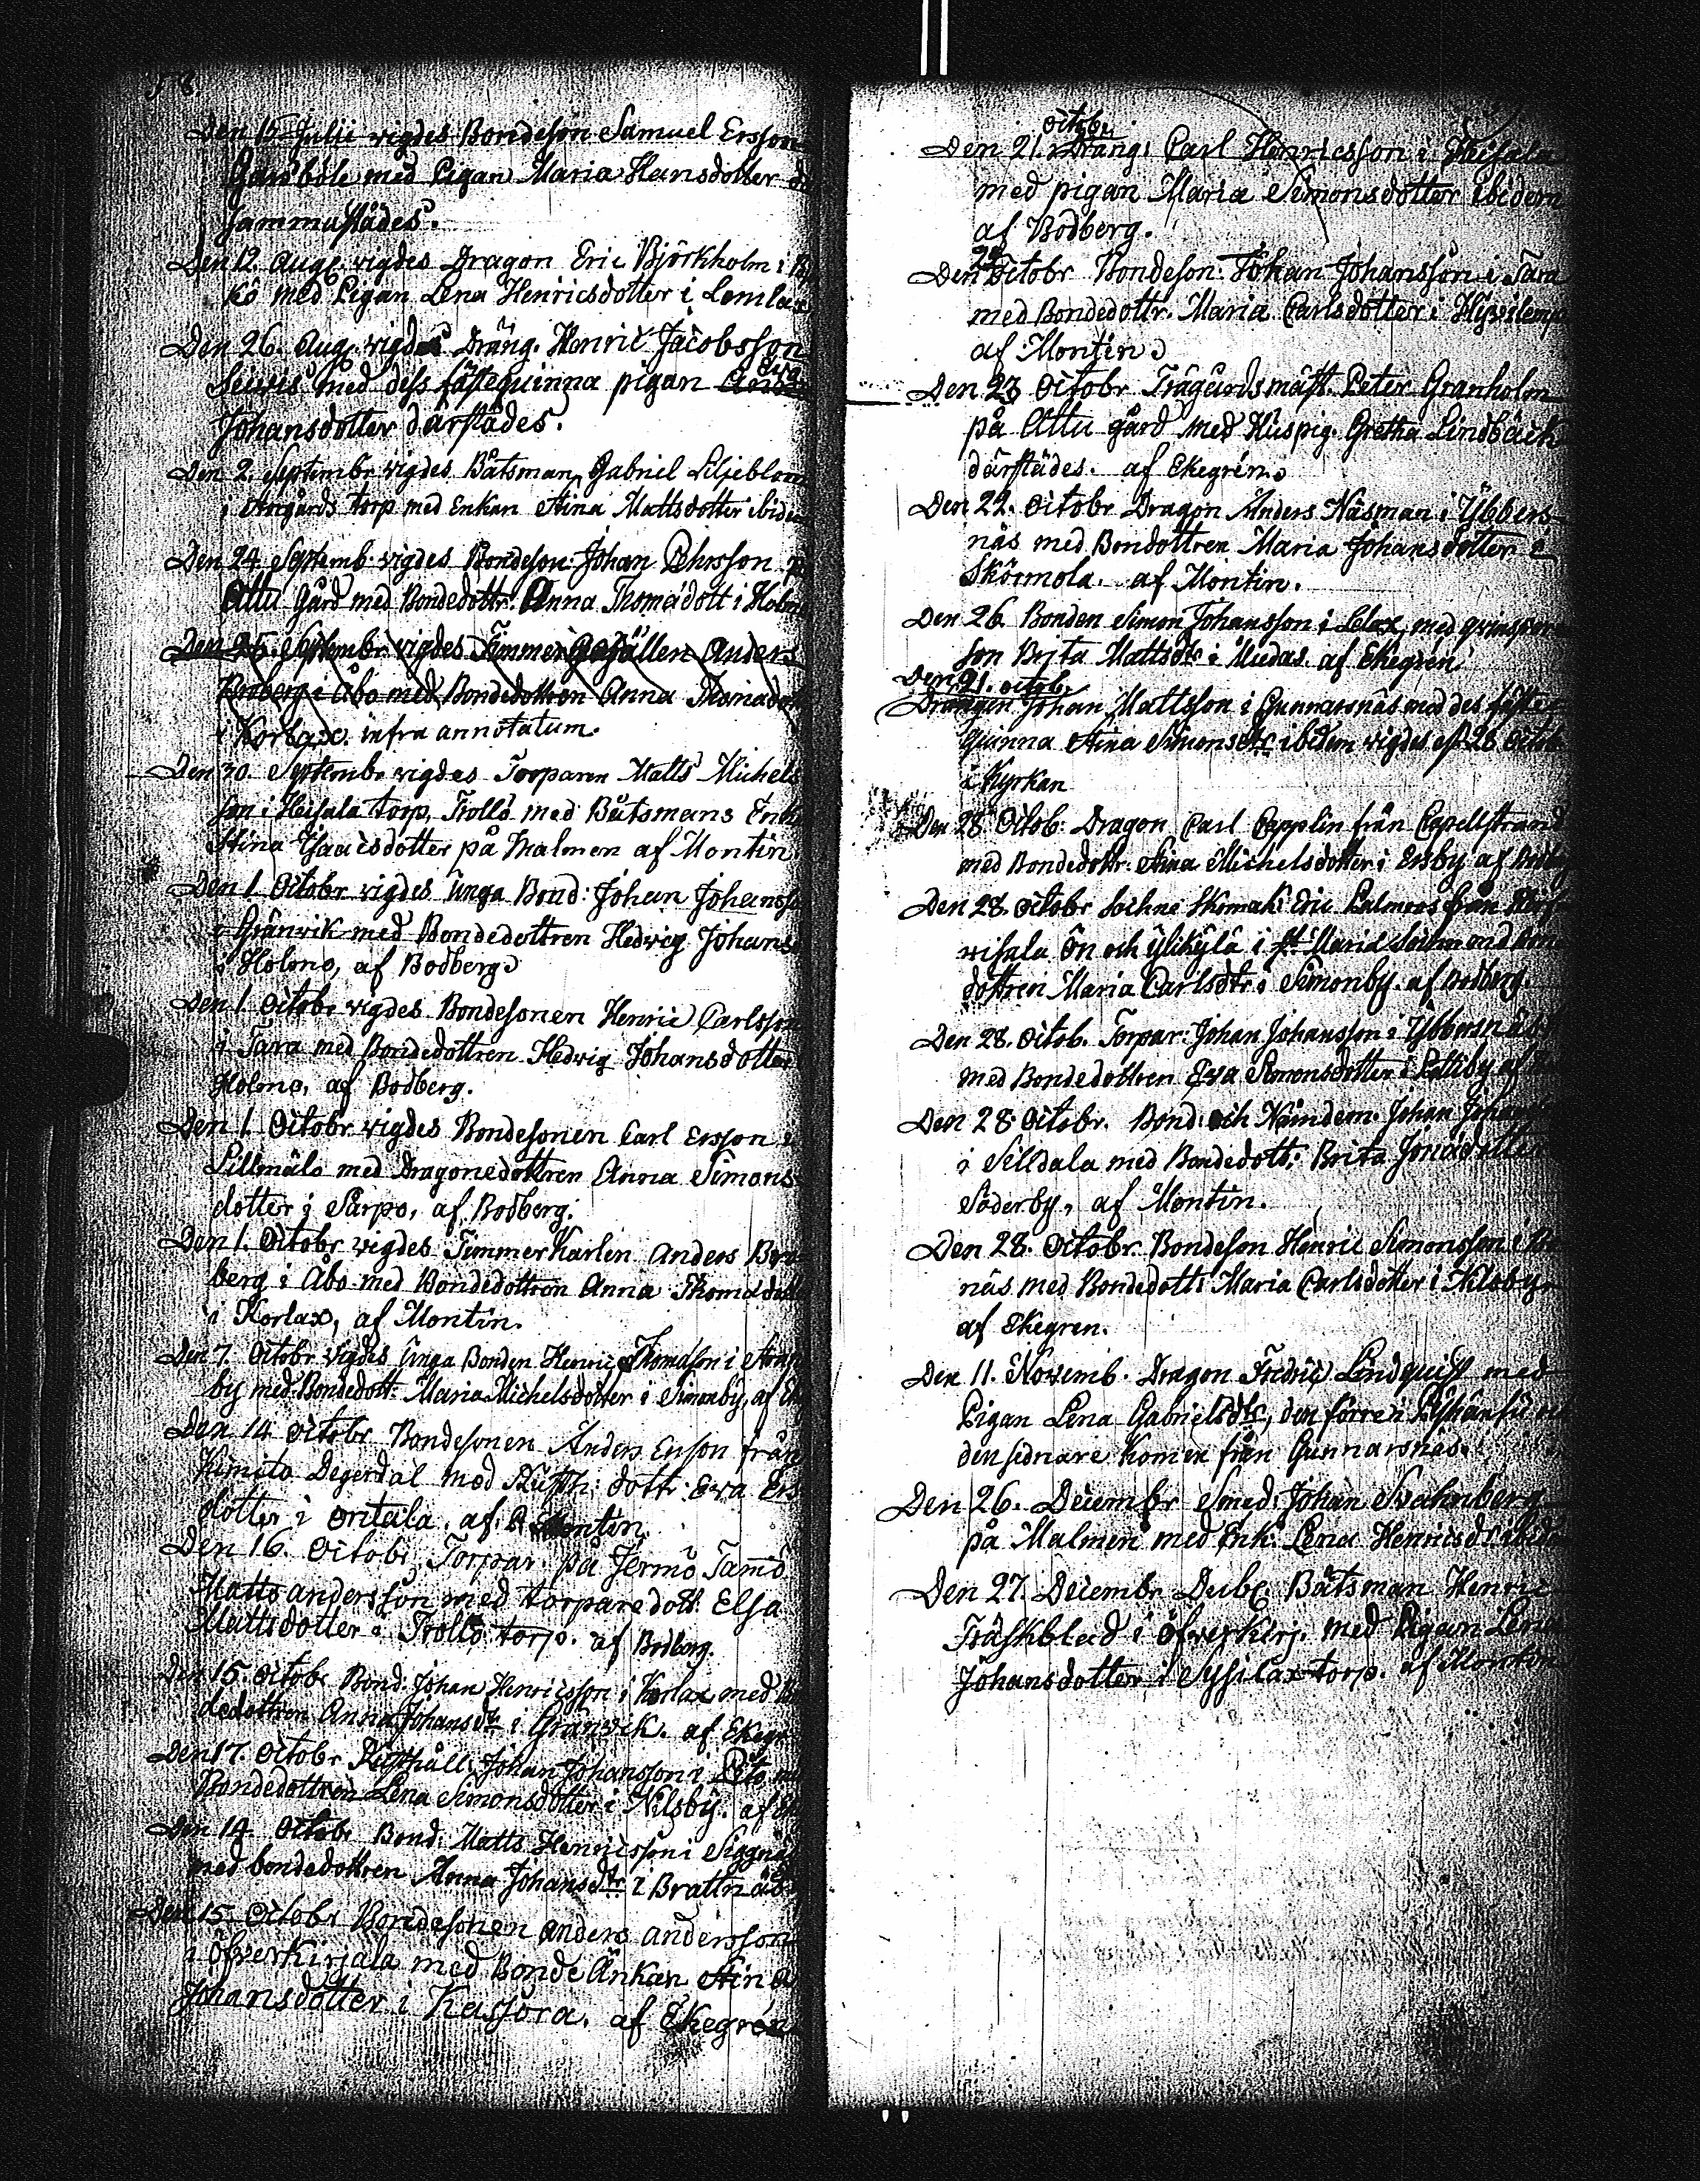 Den 15 Julii vigdes Bondeson Samuel Ersson
Gardböle med Pigan Maria Hansdotter
sammastädes.
Den 12. Aug. vigdes Dragon Eric Björkholm i
kö med Pigan Lena Henricsdotter i Lemlax
Den 26. Aug. vigdes Dräng. Henric Jacobsson
Seivis med dess fästequinna pigan
Johansdotter därstädes.
Den 2. Septembr vigdes Båtsman Gabriel Liljeblom
i torp med Enkan Stina Mattsdotter ibidem
Den 24 Septemb vigdes Bondeson: Johan Pehrsson
Attu Gård med Bondedottr. Anna Thomædott i
Den 25. Septembr vigdes Timmer Gesällen Anders
Broberg i Åbo med Bondedottren Anna
i Korlax. infra annotatum.
Den 30. Septembr vigdes Torparen Matts Michels
son i Heisala torp, Trollö med Båtsmans Enka
Stina Isaacsdotter på Malmen af Montin
Den 1 Octobr vigdes Unga Bond: Johan Johansso
i Gränvik med Bondedottren Hedwig Johans
i Holono, af Bodberg
Den 1 Octobr vigdes Bondesonen Henric Carlsson
i Tara med Bondedottren Hedwig Johansdotter
Holono, af Bodberg.
Den 1 Octobr vigdes Bondesonen Carl Ersson i
Sillmälo med Dragonedottren Anna Simons
dotter i Särpo, af Bodberg.
Den 1. Octobr vigdes Timmerkarlen Anders Bro
berg i Åbo med Bondedottren Anna Thomædotter
i Korlax, af Montin.
Den 7. Octobr vigdes Unga Bonden Henric Thomasson i
by med Bondedott: Maria Michelsdotter i Simonby, af
Den 14 Octobr Bondesonen Anders Ersson från
Kimito Degerdal med Rusth: dottr: Eva Ers
dotter i Ontala. af Montin
Den 16. Octobr, Torpar. på Jermo Tamö
Matts andersson med torparedott Elsa
Mattsdotter i Trollö torp. af Bodberg.
Den 15. Octobr Bond: Johan Henricsson i Korlax med Bon
dedottren Anna Johansdtr i Gränvik. af Ekegr
Den 17. Octobr Rusthåll. Johan Johansson i med
Bondedottren Lena Simonsdotter i Nilsby. af
Den 14 Octobr Bond. Matts Henricsson i Siggnäs
med bondedottren Anna Johansdtr i Brattnäs
Den 15. Octobr Bondesonen anders andersson
i öfverkirjala med Bonde Änkan Stina
Johansdotter i Kassora. af Ekegrén
Octobr
Den 21. Dräng: Carl Henricsson i Heisala
med pigan Maria Simonsdotter ibidem
af Bodberg.
Den Octobr Bondeson: Johan Johansson i Tara
med Bondedottr. Maria Carlsdotter i Hyvilemp
af Montin
Den 23 Octobr Trägårdsmäst. Peter Granholm
på Attu gård med Huspig. Gretha Lindbäck
därstädes. af Ekegrén
Den 22. Octobr Dragon Anders Näsman i Ybbers
näs med Bondottren Maria Johansdotter i
Skörmola. af Montin.
Den 26 Bonden Simon Johansson i Lelax, med
son Brita Mattsdtr i Mudas. af Ekegren
Den 21. octob.
Drängen Johan Mattsson i Gunnarsnäs med des fäste
quinna Stina Simonsdtr ibidem vigdes 28 Octob
i Kyrkan
Den 28 Octob: Dragon Carl Capplin från Capellstrand
med Bondedottr. Stina Michelsdotter i Ersby af
Den 28. Octobr Sochne Skomak. Eric Palmroos från
visala Ön och Ylikylä i St Marie Sockn
dottren Maria Carlsdtr i Simonby. af Bodberg.
Den 28. Octob. Torpar: Johan Johansson i Ybbersnäs
med Bondedottren Eva Simonsdotter i Pettiby af
Den 28 Octobr. Bond: och Nämndem. Johan Johans
i Silldala med Bondedott: Brita
Söderby, af Montin.
Den 28. Octobr Bondeson Henric Simonsson i
näs med Bondedott: Maria Carlsdotter i Nilsby
af Ekegren.
Den 11. Novemb. Dragon Fredric Lindquist med
Pigan Lena Gabrielsdtr, den förre i
den sednare Komen från Gunnarsnäs.
Den 26. Decembr Smed: Johan Svahnberg
på Malmen med Enk: Lena Henricsdr ibidem
Den 27. Decembr Dubl. Båtsman Henric
Träskblad i Öfverkirj. med Pigan Lena
Johansdotter i Sysilax torp. af Montin